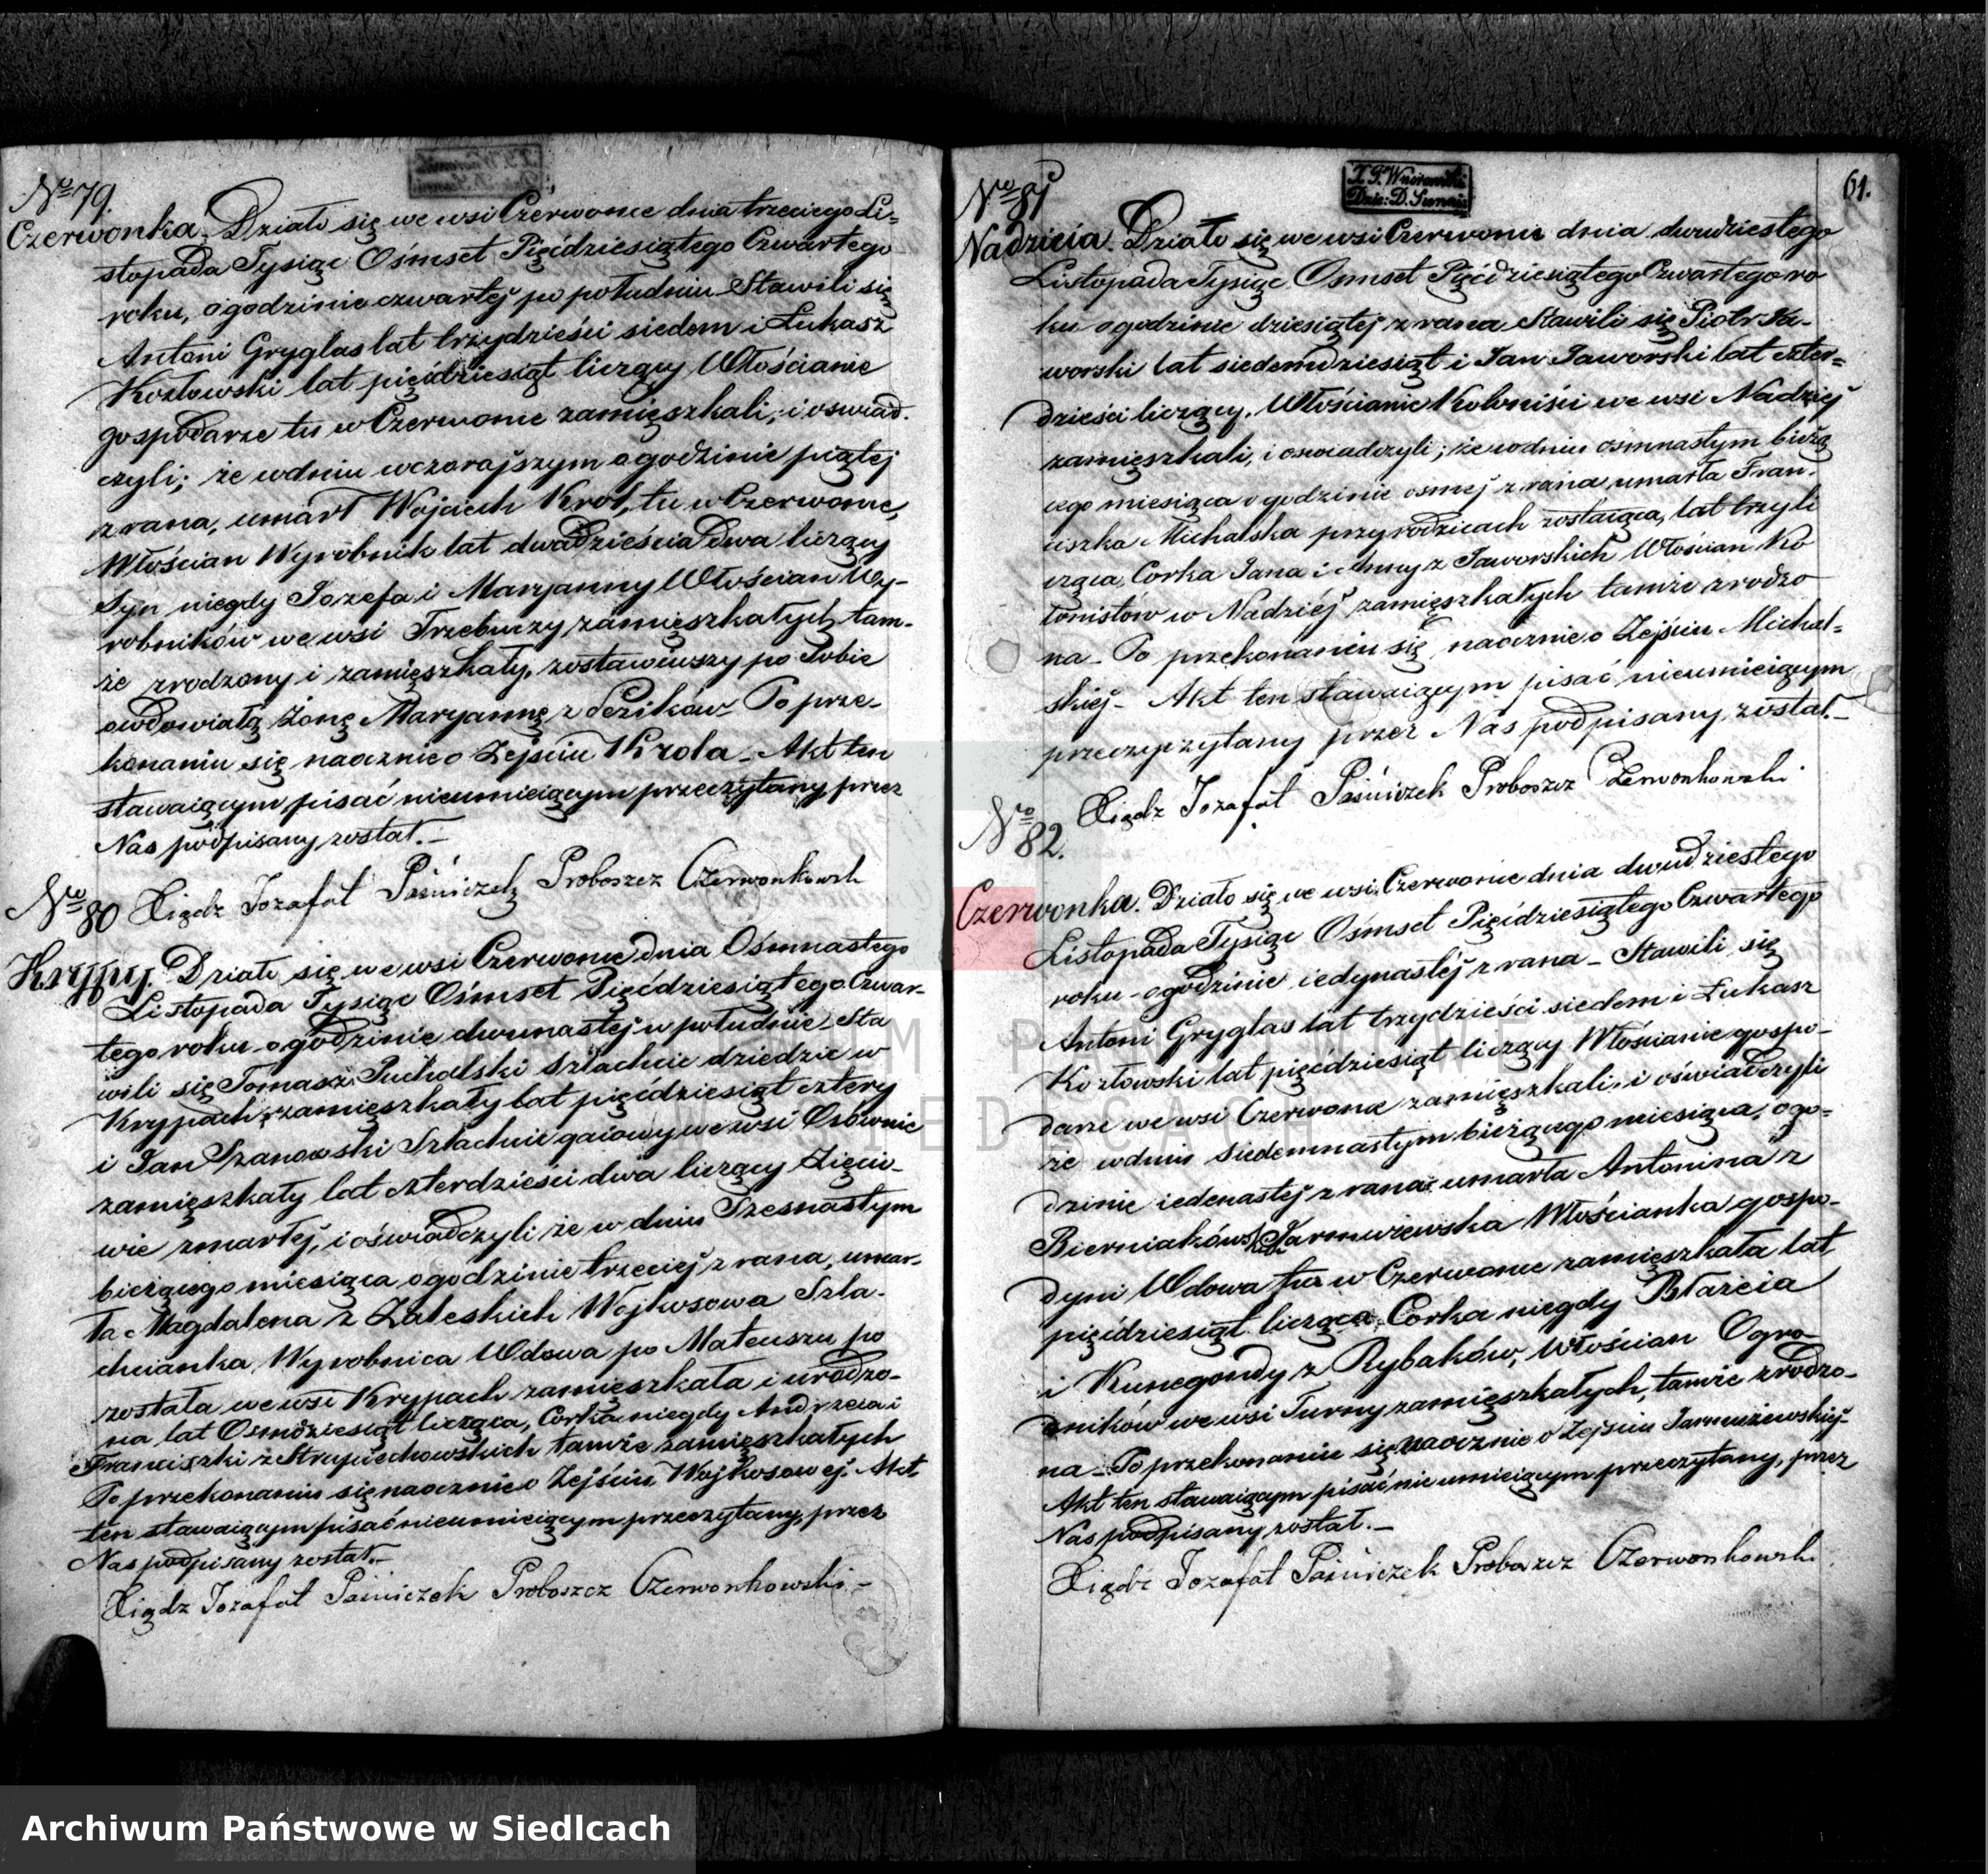 No 79.
Czerwonka. Działo się we wsi Czerwonce dnia trzeciego Li=
stopada Tysiąc Ośmset Pięćdziesiątego Czwartego
roku, o godzinie czwartej po południu Stawili się
Antoni Gryglas lat trzydzieści siedem i Łukasz
Kozłowski lat pięćdziesiąt liczący Włościanie
gospodarze tu w Czerwonce zamięszkali, i oswiad.
czyli; że w dniu wczorajszym o godzinie piątej
z rana, umarł Wojciech Krol, tu w Czerwonce,
Włościan Wyrobnik lat dwadzieścia dwa liczący
Syn niegdy Jozefa i Maryanny Włościan Wy-
robników we wsi Trzebuczy zamięszkałych tam-
że zrodzony i zamięszkały, zostawiwszy po Sobie
owdowiałą Żonę Maryannę z Po prze-
konaniu się naocznie o Zejściu Krola_ Akt ten
stawaiącym pisać nieumieiącym przeczytany przez
Nas podpisany został._
Xiądz Jozafat Paśniczek Proboszcz Czerwonkowsk
No 80
Krypy. Działo się we wsi Czerwonce dnia Ośmnastego
Listopada Tysiąc Ośmset Pięćdziesiątego Czwar-
tego roku o godzinie dwunastej w południe, Sta
wili się Tomasz Puchalski Szlachcic dziedzic w
Krypach zamięszkały lat pięćdziesiąt cztery
i Jan Szlachcic gaiowy we wsi Osównie
zamięszkały lat czterdzieści dwa liczący Zięcio-
wie zmarłej, i oświadczyli że w dniu Szesnastym
bieżącego miesiąca o godzinie trzeciej z rana, umar-
ła Magdalena z Zaleskich Wojkusowa Szla-
chcianka, Wyrobnica Wdowa po Mateuszu po
została we wsi Krypach zamięszkała i urodzo-
na lat Osmdziesiąt licząca, Corka niegdy Andrzeia i
Franciszki z tamże zamięszkałych
Po przekonaniu się naocznie o Zejściu Wojkosowej. Akt
ten stawaiącym pisać nieumieiącym przeczytany, przez
Nas podpisany został._
Xiądz Jozafat Paśniczek Proboszcz Czerwonkowski_
61.
No 81
Nadzieia. Działo się we wsi Czerwonce dnia dwudziestego
Listopada Tysiąc Osmset Pięćdziesiątego Czwartego ro
ku o godzinie dziesiątej z rana Stawili się Piotr Ja-
worski lat siedemdziesiąt i Jan Jaworski lat czter=
dzieści liczący. Włościanie Koloniści we wsi Nadziej
zamięszkali, i oswiadczyli; że w dniu ośmnastym bieżą
cego miesiąca o godzinie osmej z rana umarła Fran.
ciszka Michalska przy rodzicach zostaiąca, lat trzy li
cząca, Corka Jana i Anny z Jaworskich Włościan Ko
lonistów w Nadziéj zamięszkałych tamże zrodzo
na_ Po przekonaniu się naocznie o Zejściu Michal=
skiéj_ Akt ten stawaiącym pisać nieumieiącym
przeczyczytany przez Nas podpisany został._
Xiądz Jozafat Paśniczek Proboszcz Czerwonkowski
No 82.
Czerwonka. Działo się we wsi Czerwonce dnia dwudziestego
Listopada Tysiąc Ośmset Pięćdziesiątego Czwartego
roku o godzinie iedynastéj z rana_ Stawili się
Antoni Gryglas lat trzydzieści siedem i Łukasz
Kozłowski lat pięćdziesiąt liczący Włościanie gospo-
darze we wsi Czerwonce zamięszkali, i oświadczyli
że w dniu Siedemnastym bieżącego miesiąca, o go=
dzinie iedenastej z rana umarła Antonina z
Bierniaków Jarmużewska Włościanka gospo-
dyni Wdowa tu w Czerwonce zamięszkała lat
pięćdziesiąt licząca, Corka niegdy Błażeia
i Kunegondy z Rybaków, Włościan Ogro
dników we wsi Turny zamięszkałych, tamże zrodzo-
na_ Po przekonaniu się naocznie o Zejściu Jarmużewskiéj_
Akt ten stawaiącym pisać nie umieiącym przeczytany, przez
Nas podpisany został._
Xiądz Jozafat Paśniczek Proboszcz Czerwonkowski
ARCHIWUM PAŃSTWOWE
W SIEDLCACH
Archiwum Państwowe w Siedlcach